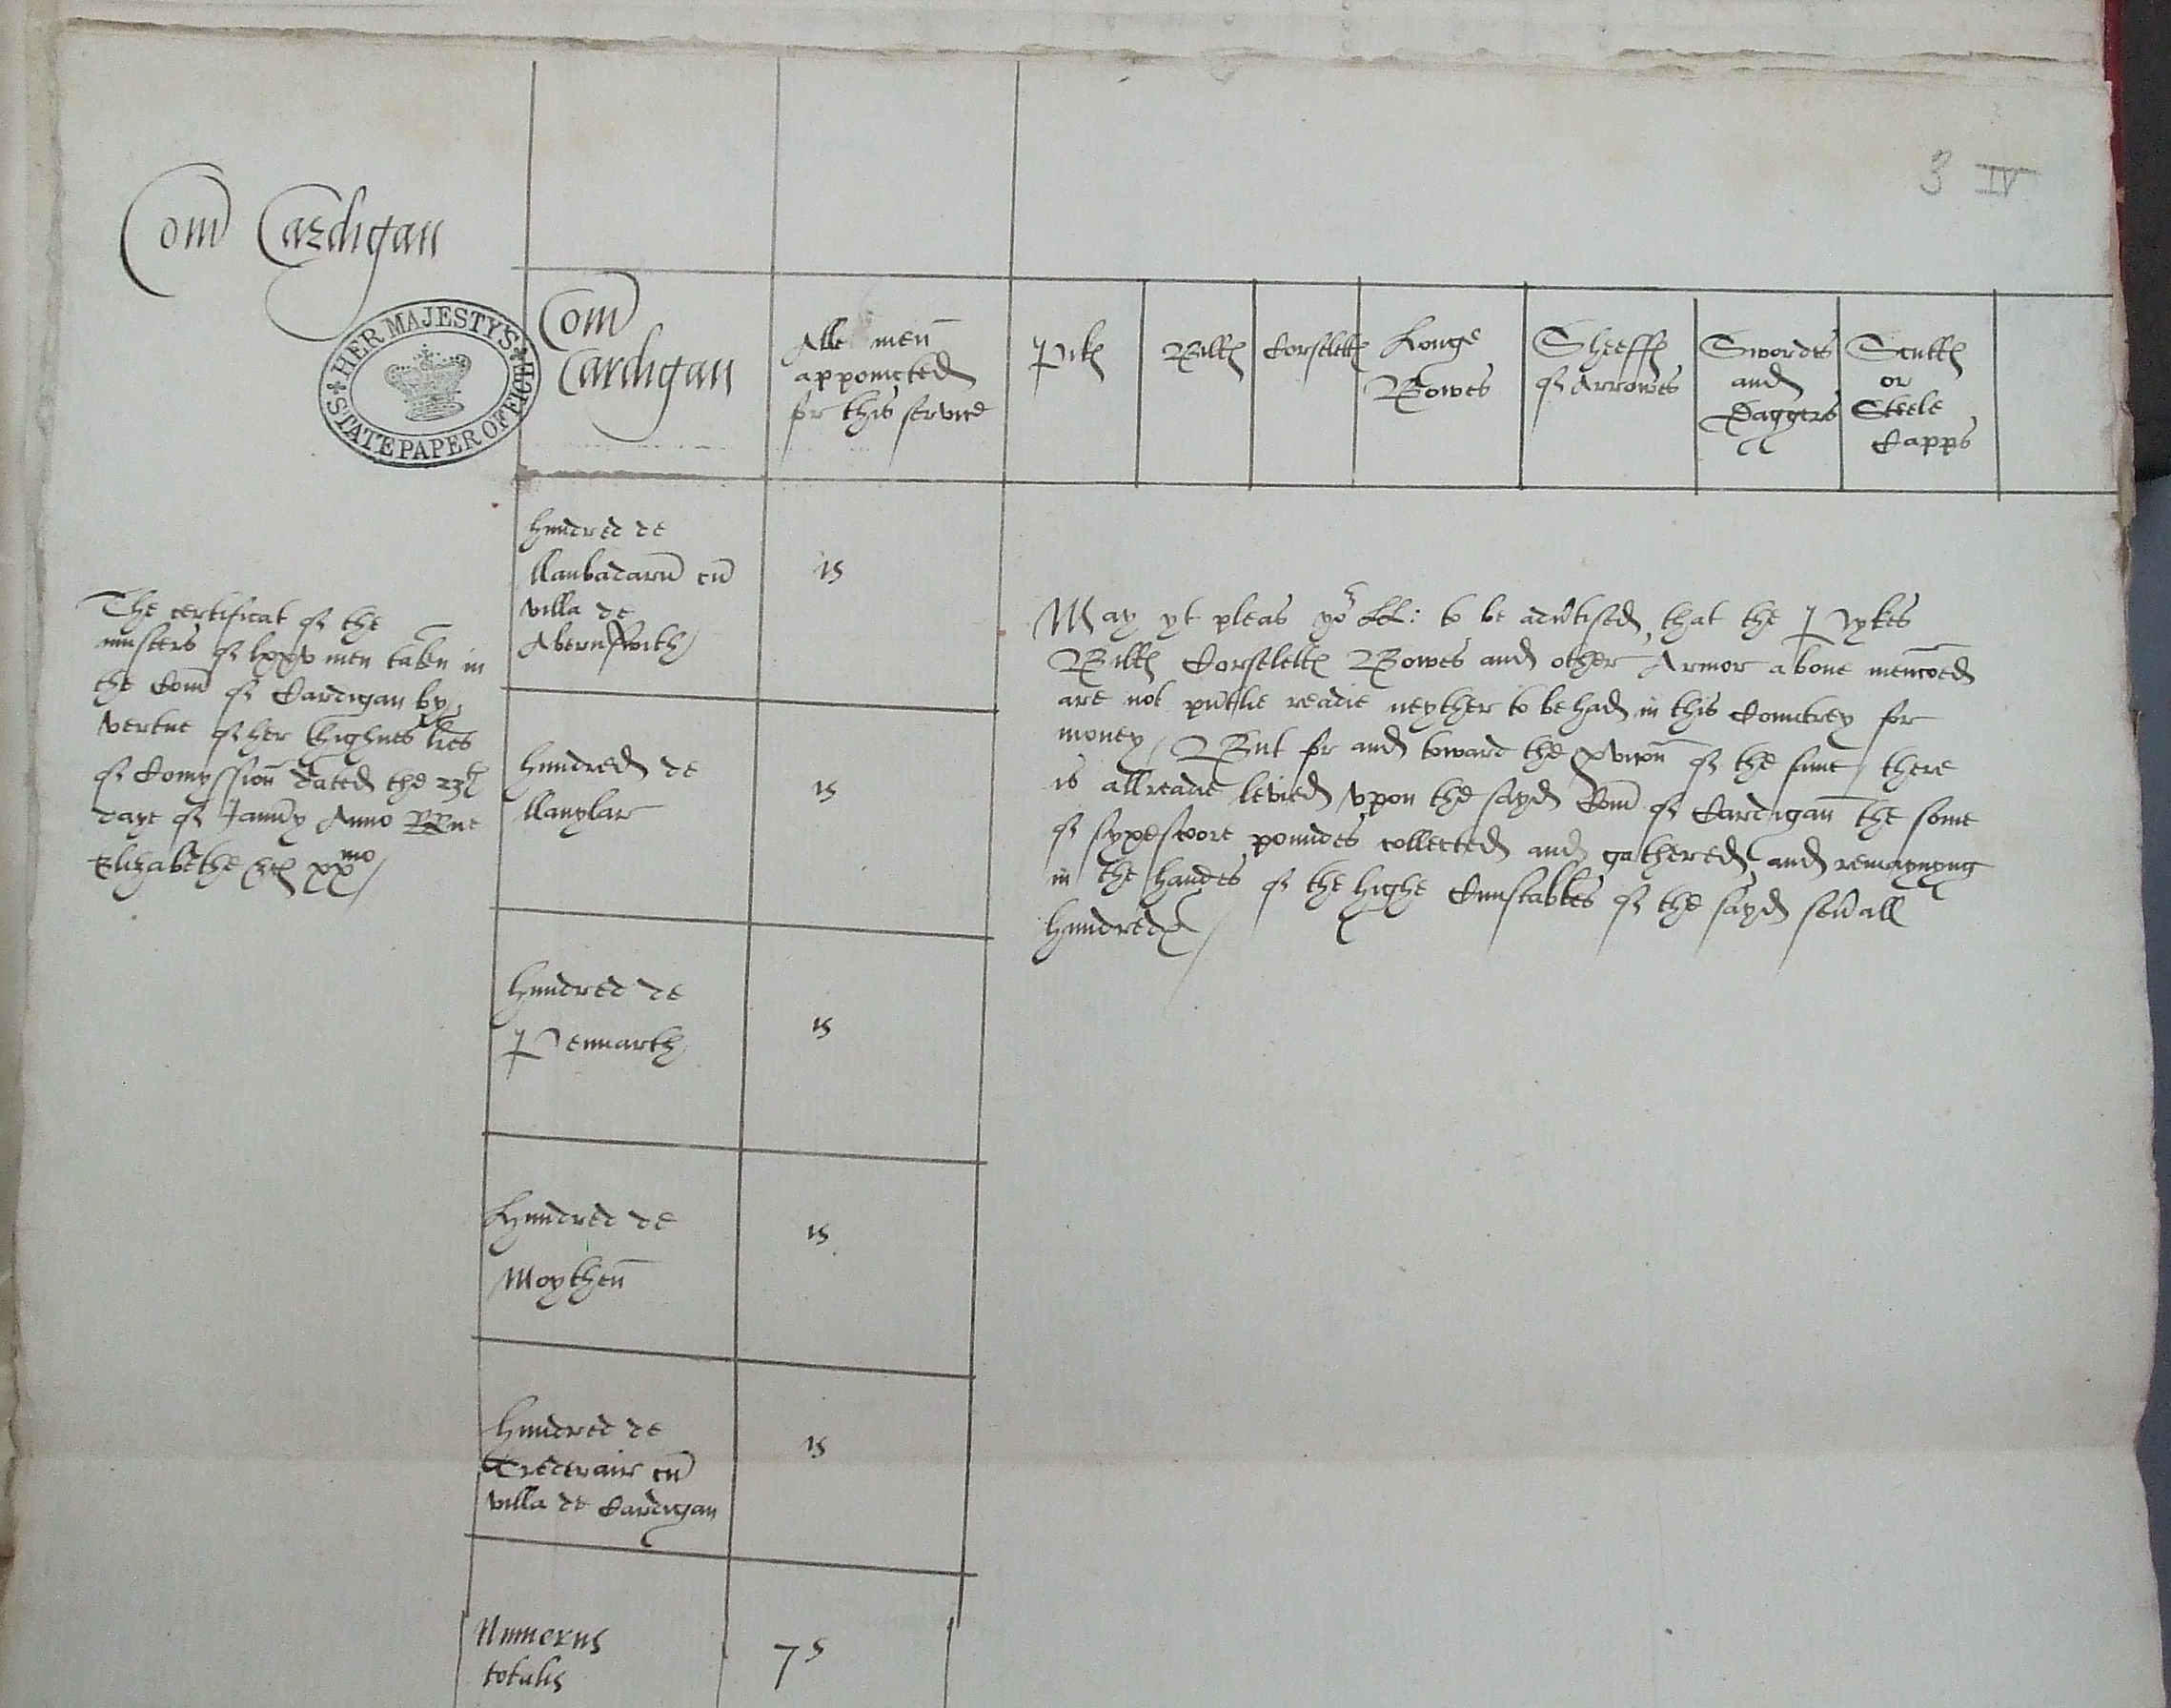 3 IV
Com Cardigan
HER MAJESTY'S STATE PAPER OFFICE
Com
Cardigan
Alle men
appoincted
for this service
Pikes
Billes
Corselettes
Longe
Bowes
Sheeffes
of Arrowes
Swordes
and
Daggers
Sculles
or
Steele
Capps
The certificat of the
musters of lxxv men taken in
the Com of Cardigan by
vertue of her highnes lres
of Comyssion dated the 23th
daye of January Anno RRne
Elizabethe xxmo
hundred de
llanbadarn cu
villa de
Aberustwith
15
hundred de
llanylar
15
hundred de
Pennarth
15
hundred de
Moythen
15
hundred de
Trederair cu
villa de Cardigan
15
Numerus
totalis
75
May yt pleas yor LL: to be advtised, that the Pykes
Billes Corselettes Bowes and other Armor above mencoed
are not pntlie readie neyther to be had in this Countrey for
money / But for and toward the pvision of the same / there
is allreadie levied upon the sayd Com of Cardigan the some
of syxescore poundes collected and gathered, and remaynyng
in the handes of the highe Cunstables of the sayd seuall
hundredes /